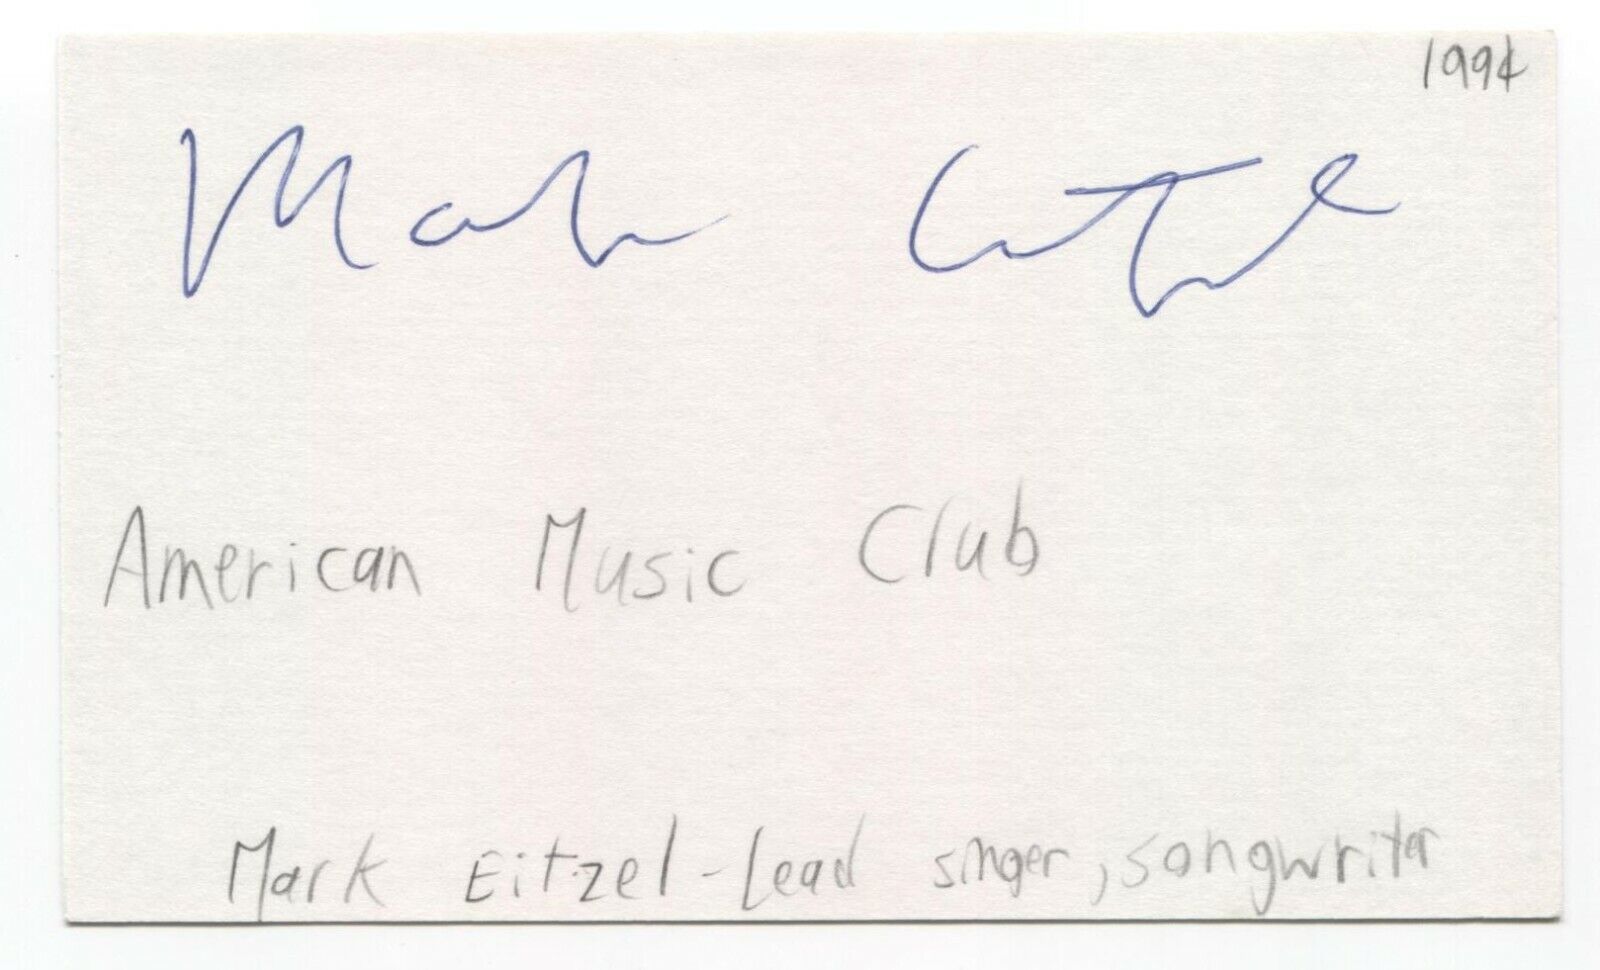 1994
Mark Eitzel
American Music Club
Mark Eitzel - Lead singer, songwriter